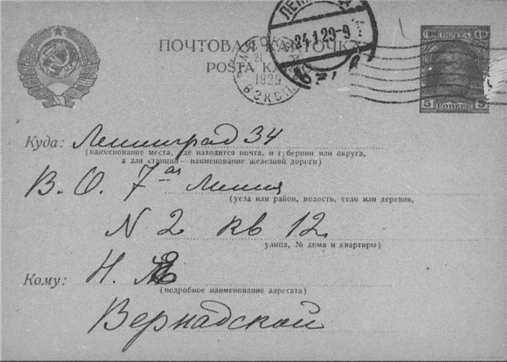 ПОЧТОВАЯ КАРТОЧКА
POSTA KA
24.1.29-9
1929
ПОЧТА
5 КОПЕЕК 5
Куда: Ленинград 34
(наименование места, где находится почта, и губернии или округа,
а для станции—наименование железной дороги)
В. О. 7ая Линия
(уезд или район, волость, село или деревня,
N 2 кв 12
улица, № дома и квартиры)
Кому: Н. Е
(подробное наименование адресата)
Вернадской